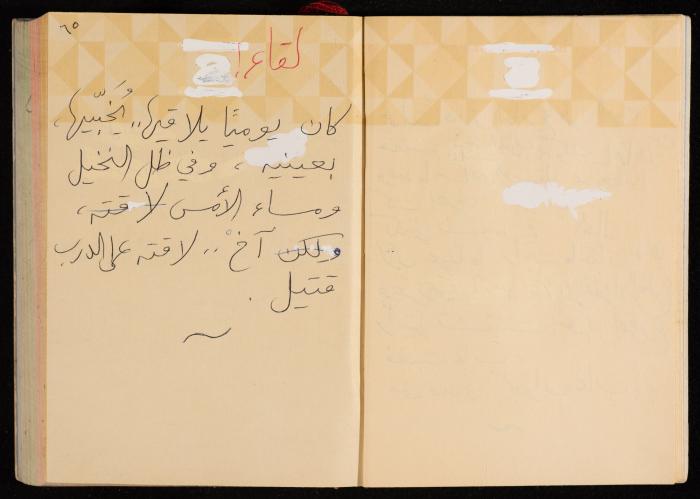 ٦٥
لقاء!
كان يوميًا يلاقيها,, يُخَبّيها,
بعينيه ، وفي ظل النخيل
ومساء الأمس لاقته ،
ولكن آخْ ,, لاقته على الدرب
قتيل .
~